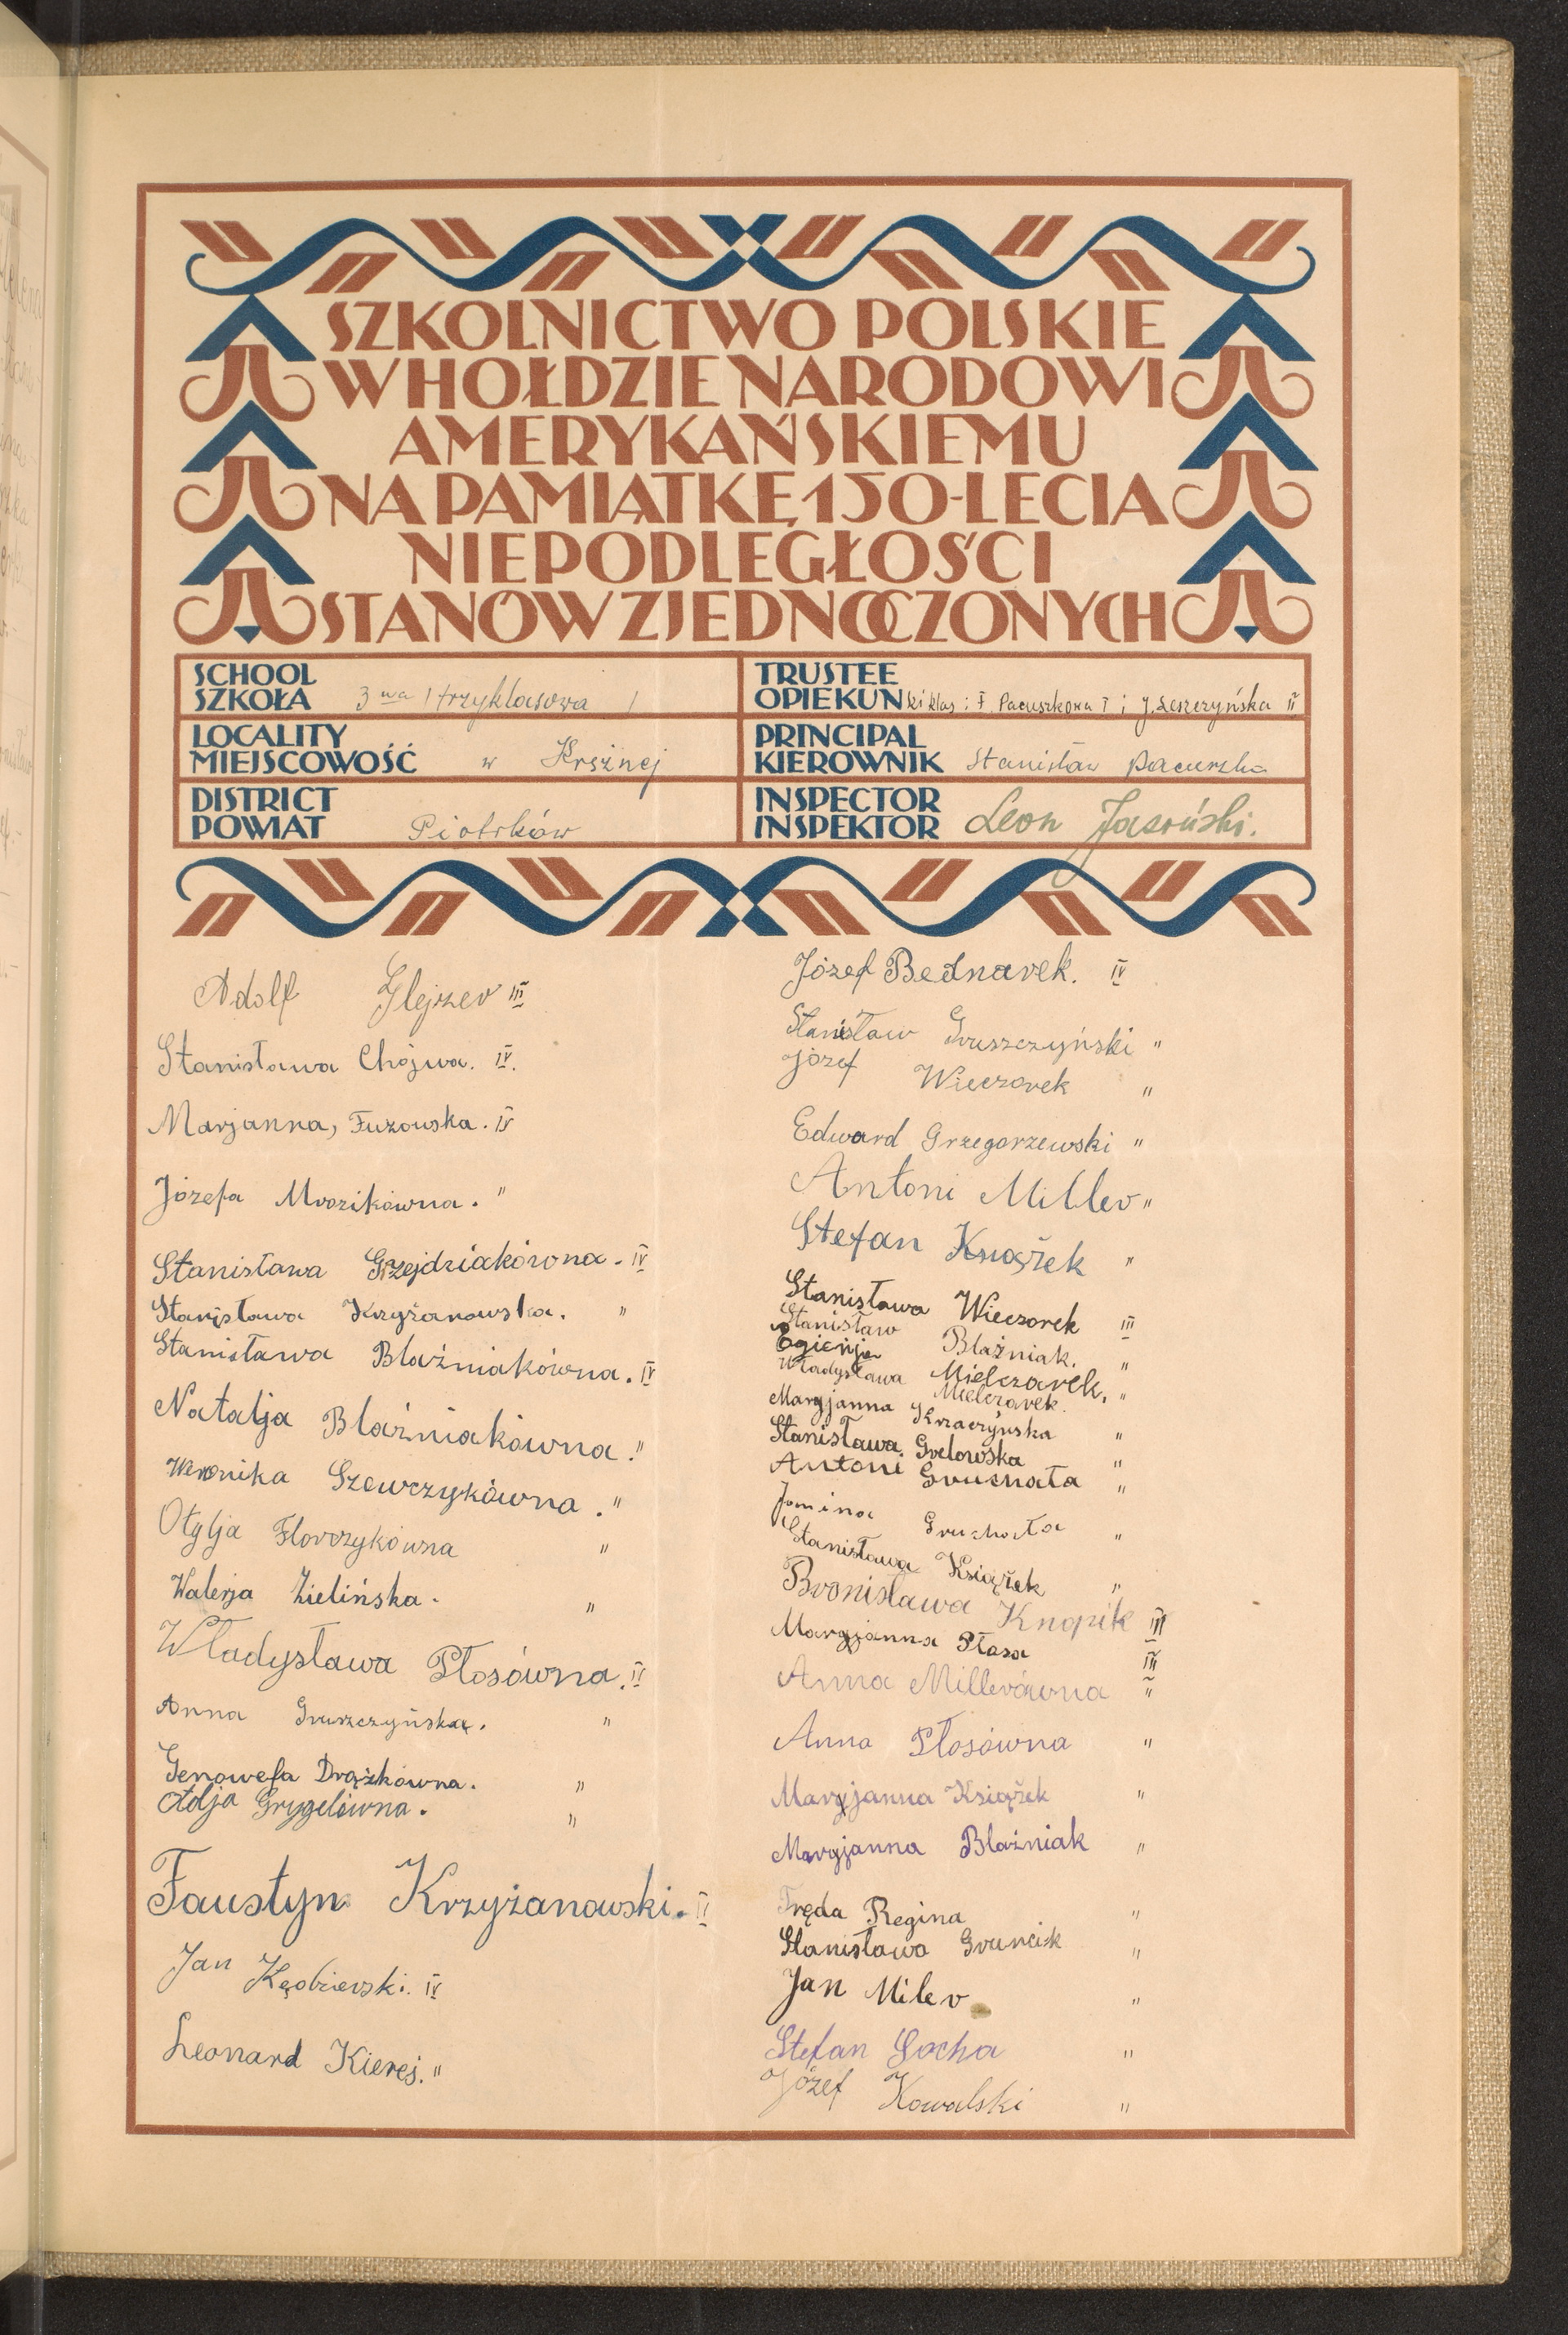 SZKOLNICTWO POLSKIE
W HOŁDZIE NARODOWI
AMERYKAŃSKIEMU
NA PAMIĄTKĘ 150-LECIA
NIEPODLEGŁOŚCI
STANÓW ZJEDNOCZONYCH
SCHOOL
SZKOŁA 3 wa / trzyklasowa /
TRUSTEE
OPIEKUNki klas: F. Pacuszkowa I i J. Leszczyńska II
LOCALITY
MIEJSCOWOŚĆ w Krężnej
PRINCIPAL
KIEROWNIK Stanisław Pacuszka
DISTRICT
POWIAT Piotrków
INSPECTOR
INSPEKTOR Leon Jasiński.
Adolf Glejzer III
Stanisława Chójwa. IV.
Marjanna, Fuzowska. IV
Józefa Mrozikówna. "
Stanisława Grzejdziakówna. IV
Stanisława Krzyżanowska. "
Stanisława Błaźniakówna. IV
Natalja Błaźniakówna. "
Weronika Szewczykówna. "
Otylja Florczykówna "
Walerja Zielińska. "
Władysława Płosówna. IV
Anna Gruszczyńska. "
Genowefa Drążkówna. "
Adja Grygelówna. "
Faustyn Krzyżanowski. IV
Jan Kędzierski. IV
Leonard Kierej. "
Józef Bednarek. IV
Stanisław Gruszczyński "
Józef Wieczorek "
Edward Grzegorzewski "
Antoni Miller "
Stefan Książek "
Stanisława Wieczorek III
Stanisław Błaźniak. "
Ogienja Mielczarek. "
Władysława Mielczarek.
Maryjanna Krzaczyńska "
Stanisława Grelowska "
Antoni Gruchała "
Janina Gruchała "
Stanisława Książek "
Bronisława Knopik III
Maryjanna Płasa III
Anna Millerówna "
Anna Płosówna "
Maryjanna Książek "
Maryjanna Błaźniak "
Tręda Regina "
Stanisława Gruncik "
Jan Miler "
Stefan Socha "
Józef Kowalski "